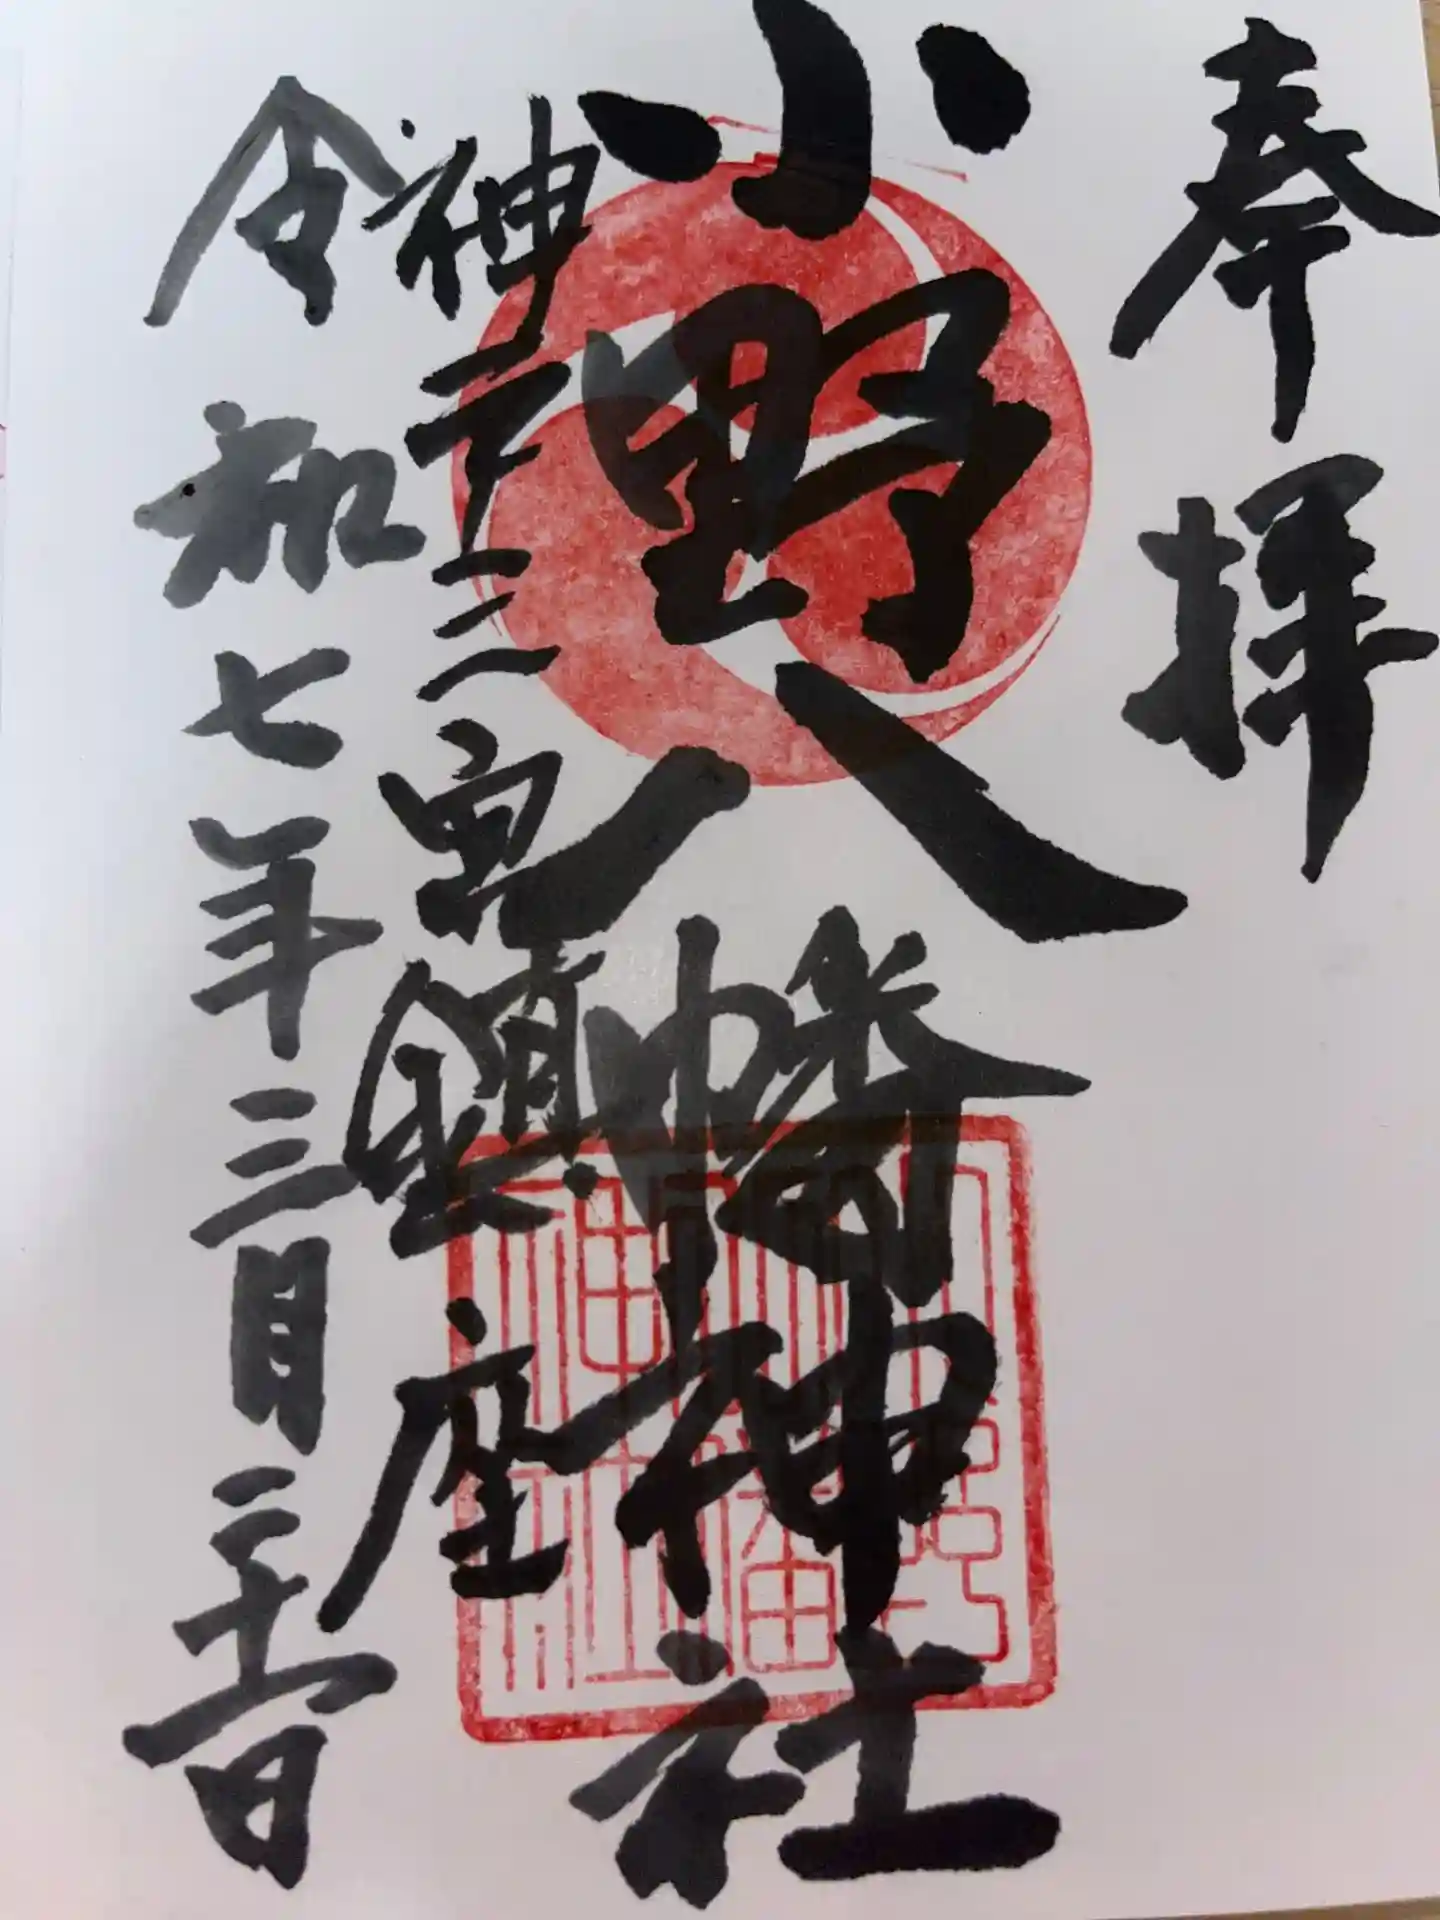 奉拝
小野八幡神社
神戸三宮鎮座
令和七年三月三十一日